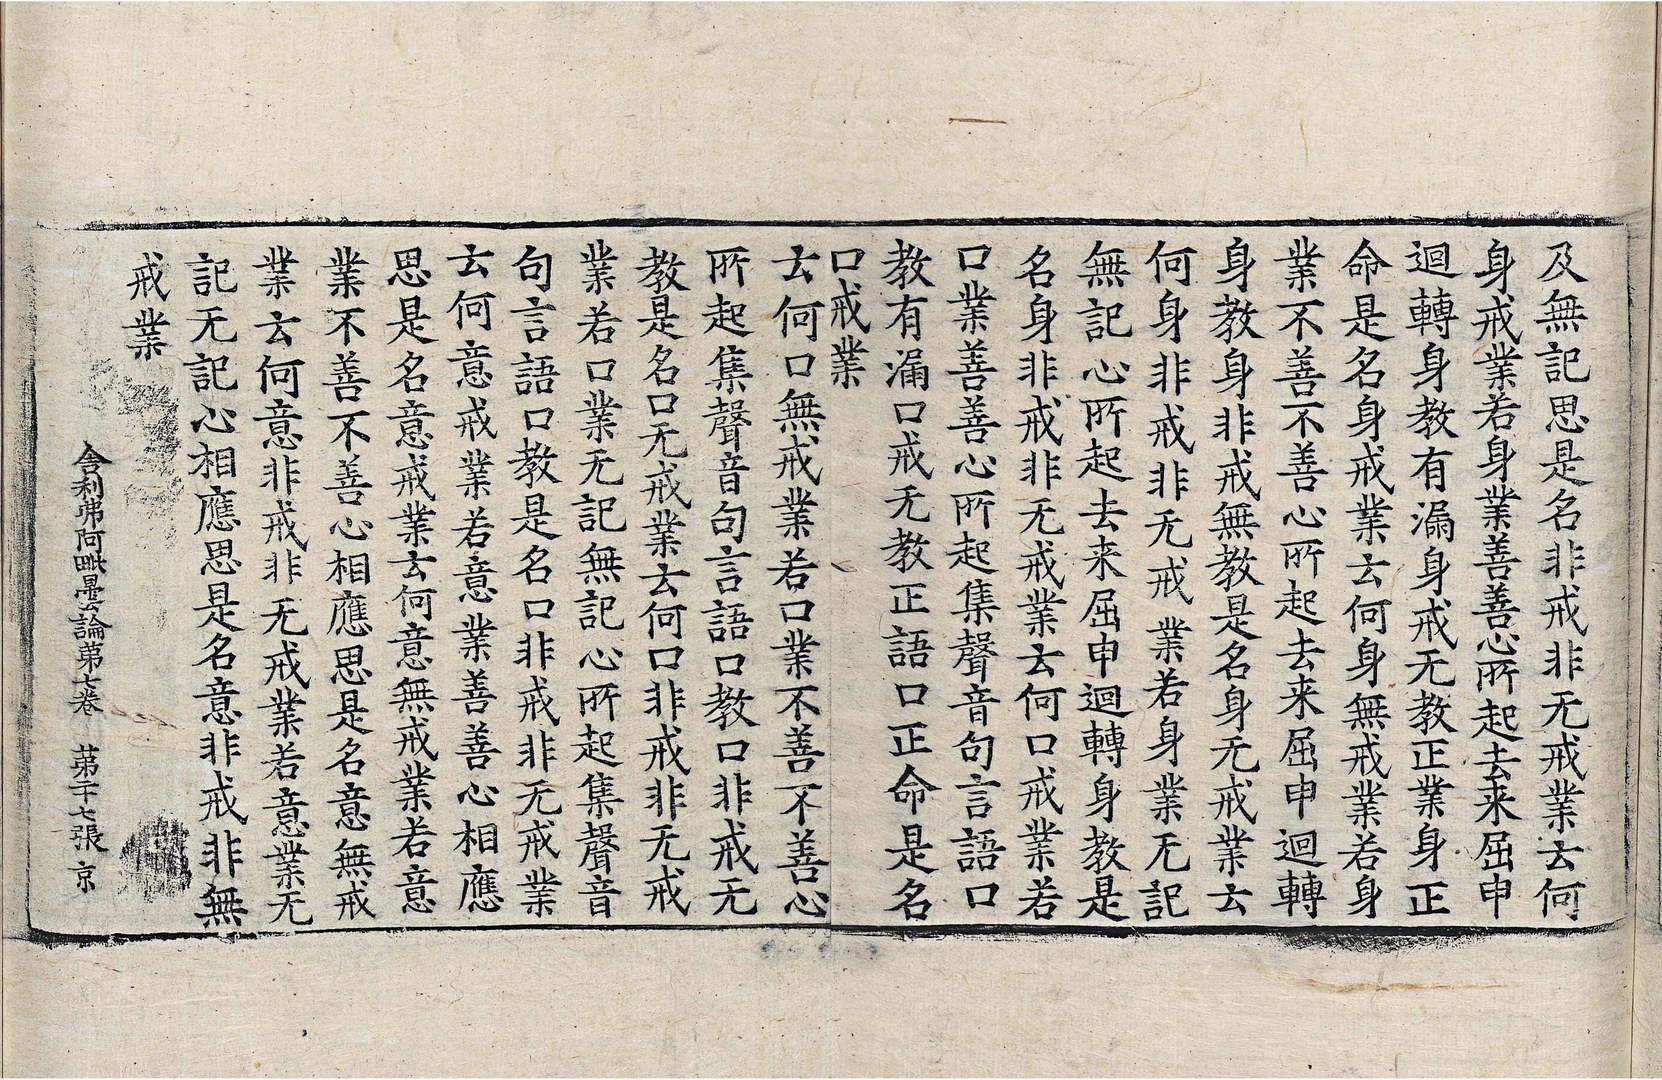 及無記思是名非戒非无戒業云何
身戒業若身業善善心所起去来屈申
迴轉身教有漏身戒无教正業身正
命是名身戒業云何身無戒業若身
業不善不善心所起去来屈申迴轉
身教身非戒無教是名身无戒業云
何身非戒非无戒業若身業无記
無記心所起去来屈申迴轉身教是
名身非戒非无戒業云何口戒業若
口業善善心所起集聲音句言語口
教有漏口戒无教正語口正命是名
口戒業
云何口無戒業若口業不善不善心
所起集聲音句言語口教口非戒无
教是名口无戒業云何口非戒非无戒
業若口業无記無記心所起集聲音
句言語口教是名口非戒非无戒業
云何意戒業若意業善善心相應
思是名意戒業云何意無戒業若意
業不善不善心相應思是名意無戒
業云何意非戒非无戒業若意業无
記无記心相應思是名意非戒非無
戒業
舍利弗阿毗曇論第七卷　第二十七張　京